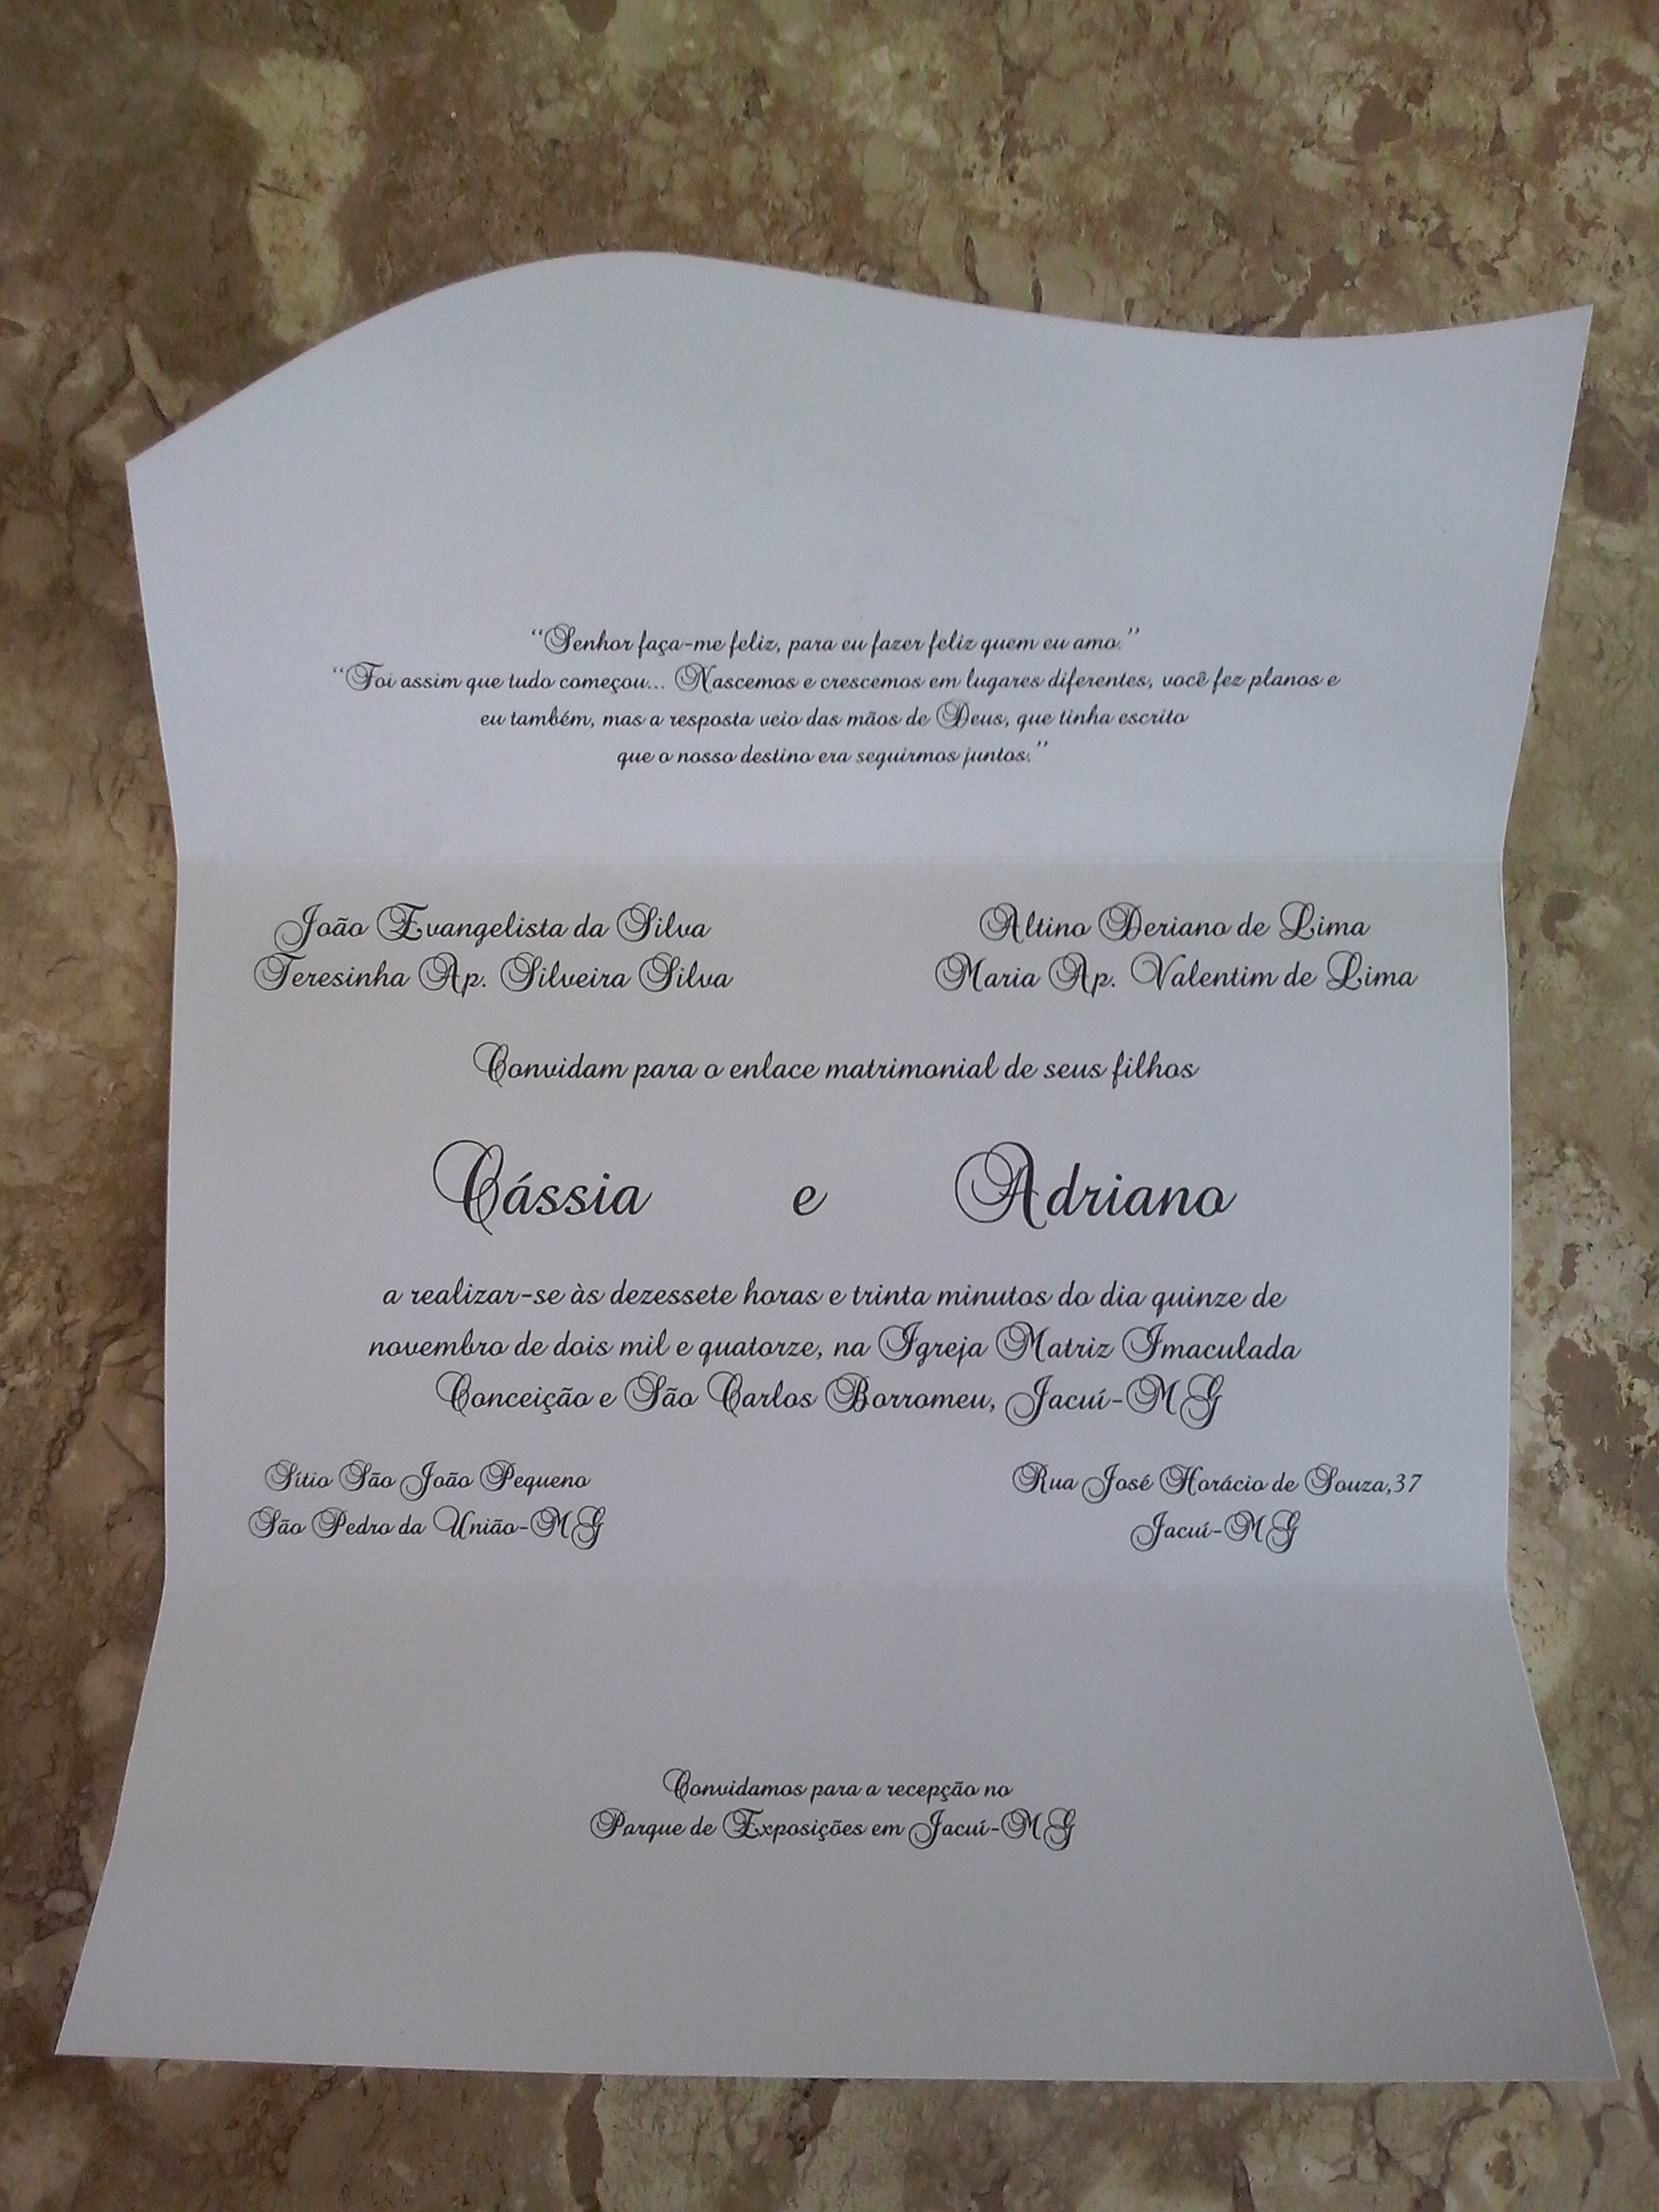 “Senhor faça-me feliz, para eu fazer feliz quem eu amo.”
“Foi assim que tudo começou... Nascemos e crescemos em lugares diferentes, você fez planos e
eu também, mas a resposta veio das mãos de Deus, que tinha escrito
que o nosso destino era seguirmos juntos.”
João Evangelista da Silva
Teresinha Ap. Silveira Silva
Altino Deriano de Lima
Maria Ap. Valentim de Lima
Convidam para o enlace matrimonial de seus filhos
Cássia e Adriano
a realizar-se às dezessete horas e trinta minutos do dia quinze de
novembro de dois mil e quatorze, na Igreja Matriz Imaculada
Conceição e São Carlos Borromeu, Jacuí-MG
Sítio São João Pequeno
São Pedro da União-MG
Rua José Horácio de Souza,37
Jacuí-MG
Convidamos para a recepção no
Parque de Exposições em Jacuí-MG